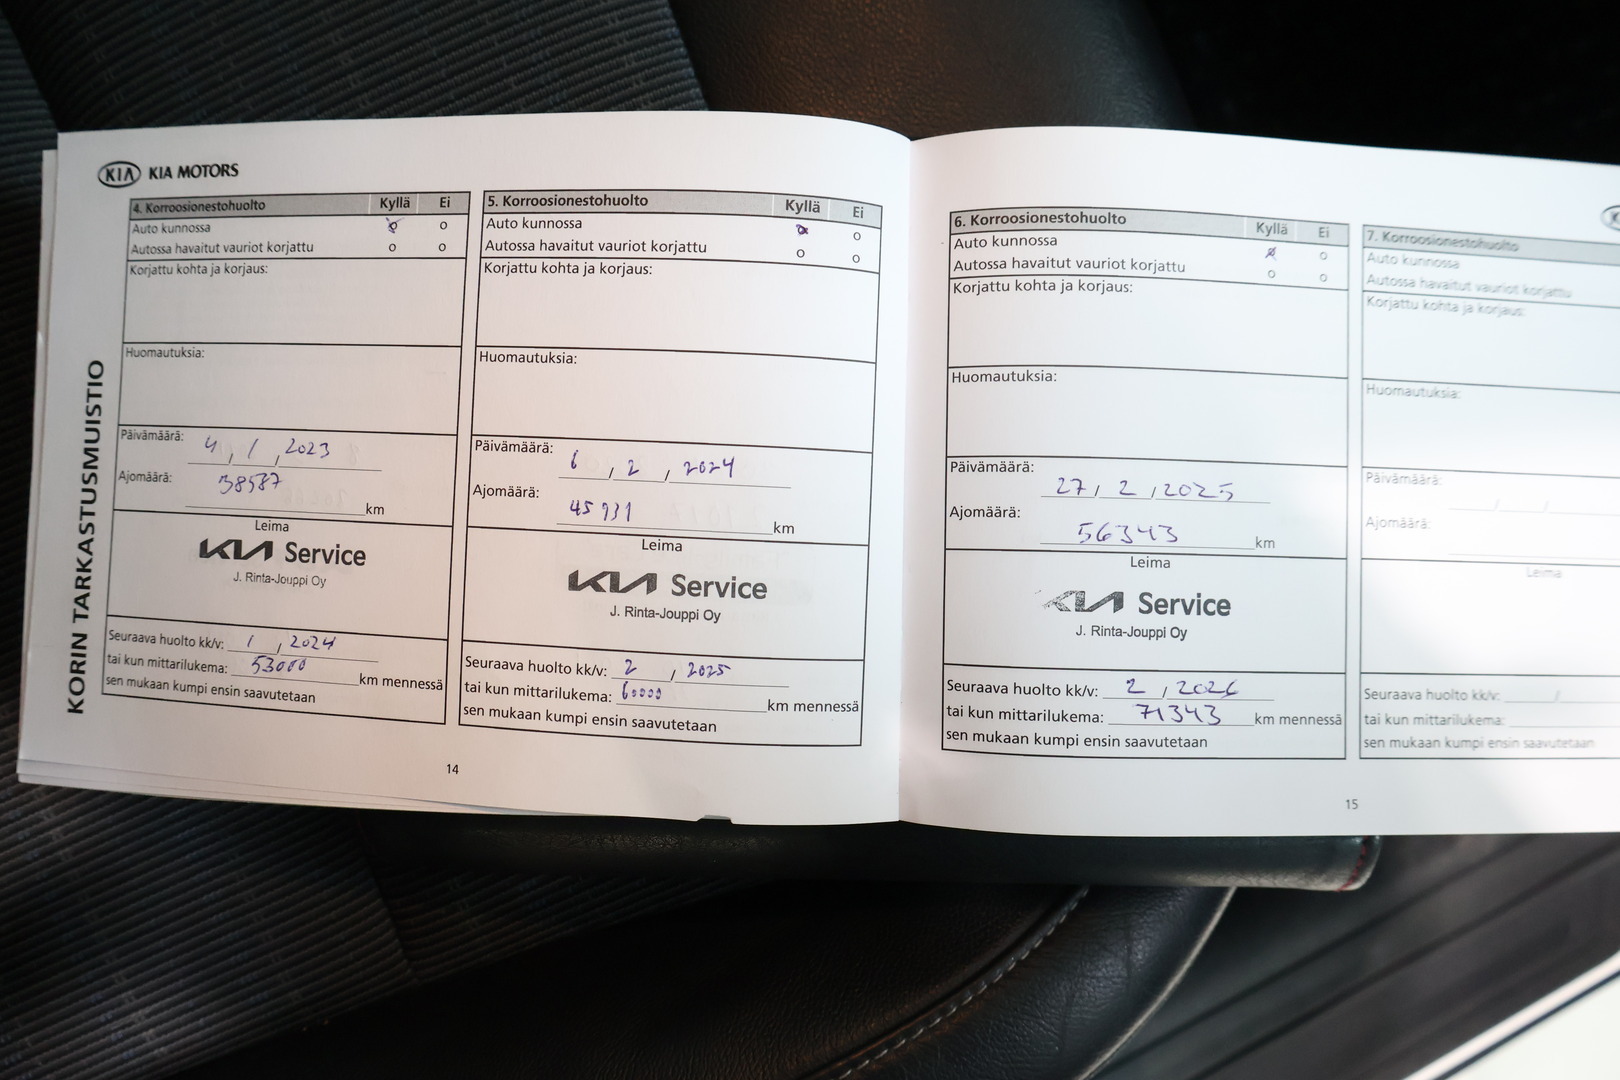 KIA KIA MOTORS
KORIN TARKASTUSMUISTIO
4. Korroosionestohuolto Kyllä Ei
Auto kunnossa o
Autossa havaitut vauriot korjattu o o
Korjattu kohta ja korjaus:
Huomautuksia:
Päivämäärä: 4, 1, 2023
Ajomäärä: 38587 km
Leima
KIA Service
J. Rinta-Jouppi Oy
Seuraava huolto kk/v: 1, 2024
tai kun mittarilukema: 53000 km mennessä
sen mukaan kumpi ensin saavutetaan
5. Korroosionestohuolto Kyllä Ei
Auto kunnossa o
Autossa havaitut vauriot korjattu o o
Korjattu kohta ja korjaus:
Huomautuksia:
Päivämäärä: 6, 2, 2024
Ajomäärä: 45931 km
Leima
KIA Service
J. Rinta-Jouppi Oy
Seuraava huolto kk/v: 2, 2025
tai kun mittarilukema: 60000 km mennessä
sen mukaan kumpi ensin saavutetaan
14
6. Korroosionestohuolto Kyllä Ei
Auto kunnossa o
Autossa havaitut vauriot korjattu o o
Korjattu kohta ja korjaus:
Huomautuksia:
Päivämäärä: 27, 2, 2025
Ajomäärä: 56343 km
Leima
KIA Service
J. Rinta-Jouppi Oy
Seuraava huolto kk/v: 2, 2026
tai kun mittarilukema: 71343 km mennessä
sen mukaan kumpi ensin saavutetaan
7. Korroosionestohuolto
Auto kunnossa
Autossa havaitut vauriot korjattu
Korjattu kohta ja korjaus:
Huomautuksia:
Päivämäärä: / /
Ajomäärä:
Leima
Seuraava huolto kk/v: /
tai kun mittarilukema:
sen mukaan kumpi ensin saavutetaan
15